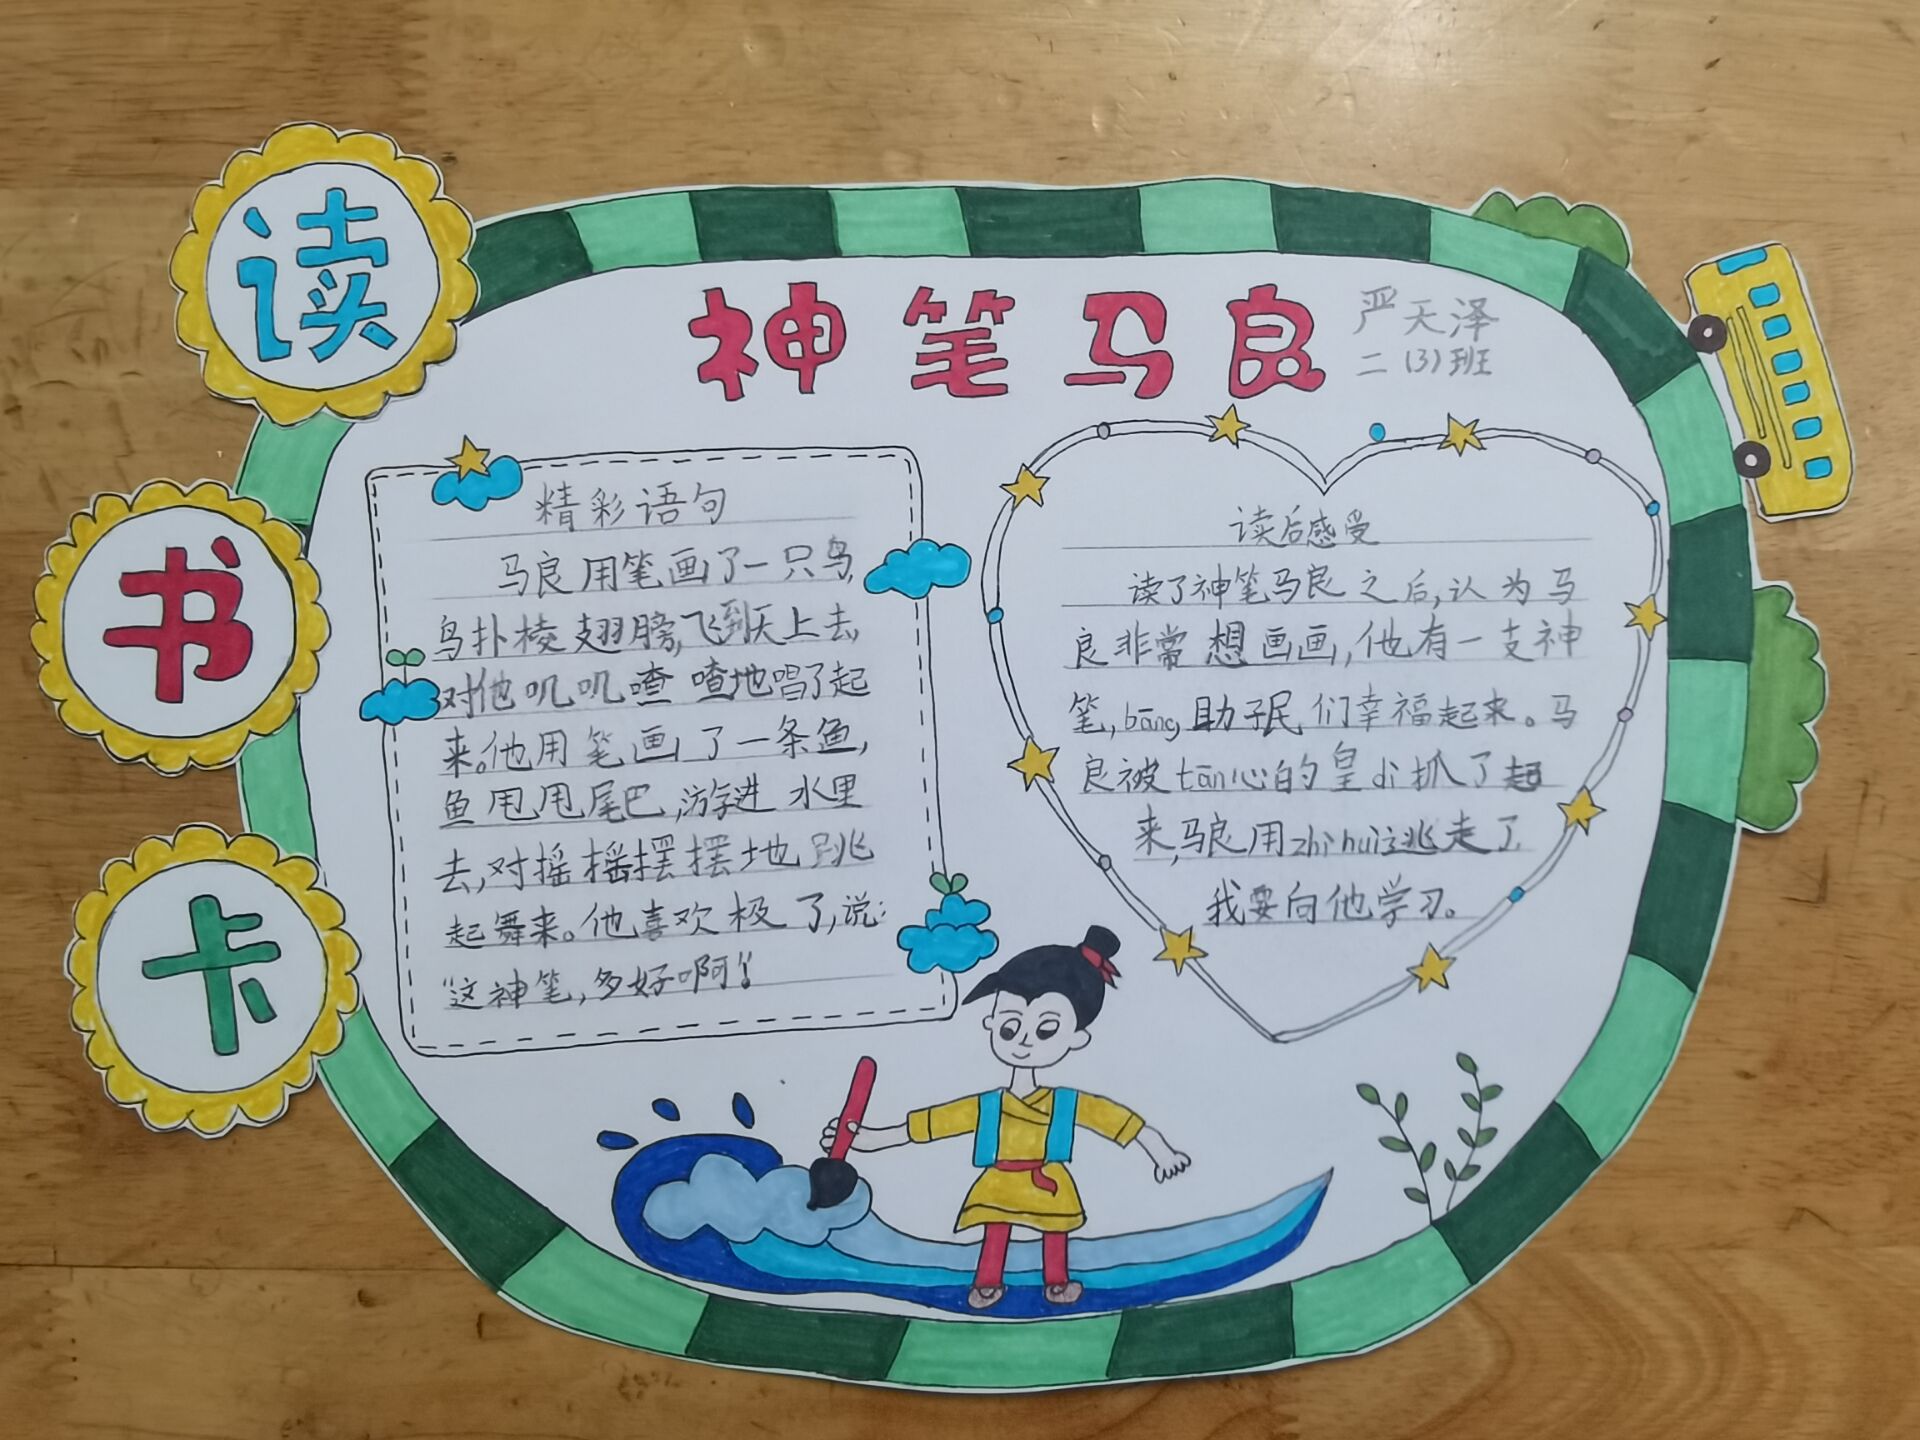 读
书
卡
神笔马良
严天泽
二(3)班
精彩语句
马良用笔画了一只鸟,
鸟扑棱翅膀,飞到天上去,
对他叽叽喳喳地唱了起
来。他用笔画了一条鱼,
鱼甩甩尾巴,游进水里
去,对摇摇摆摆地跳
起舞来。他喜欢极了,说:
“这神笔,多好啊!”
读后感受
读了神笔马良之后,认为马
良非常想画画,他有一支神
笔,bāng助子民们幸福起来。马
良被tān心的皇dì抓了起
来,马良用zhì huì逃走了
我要向他学习。